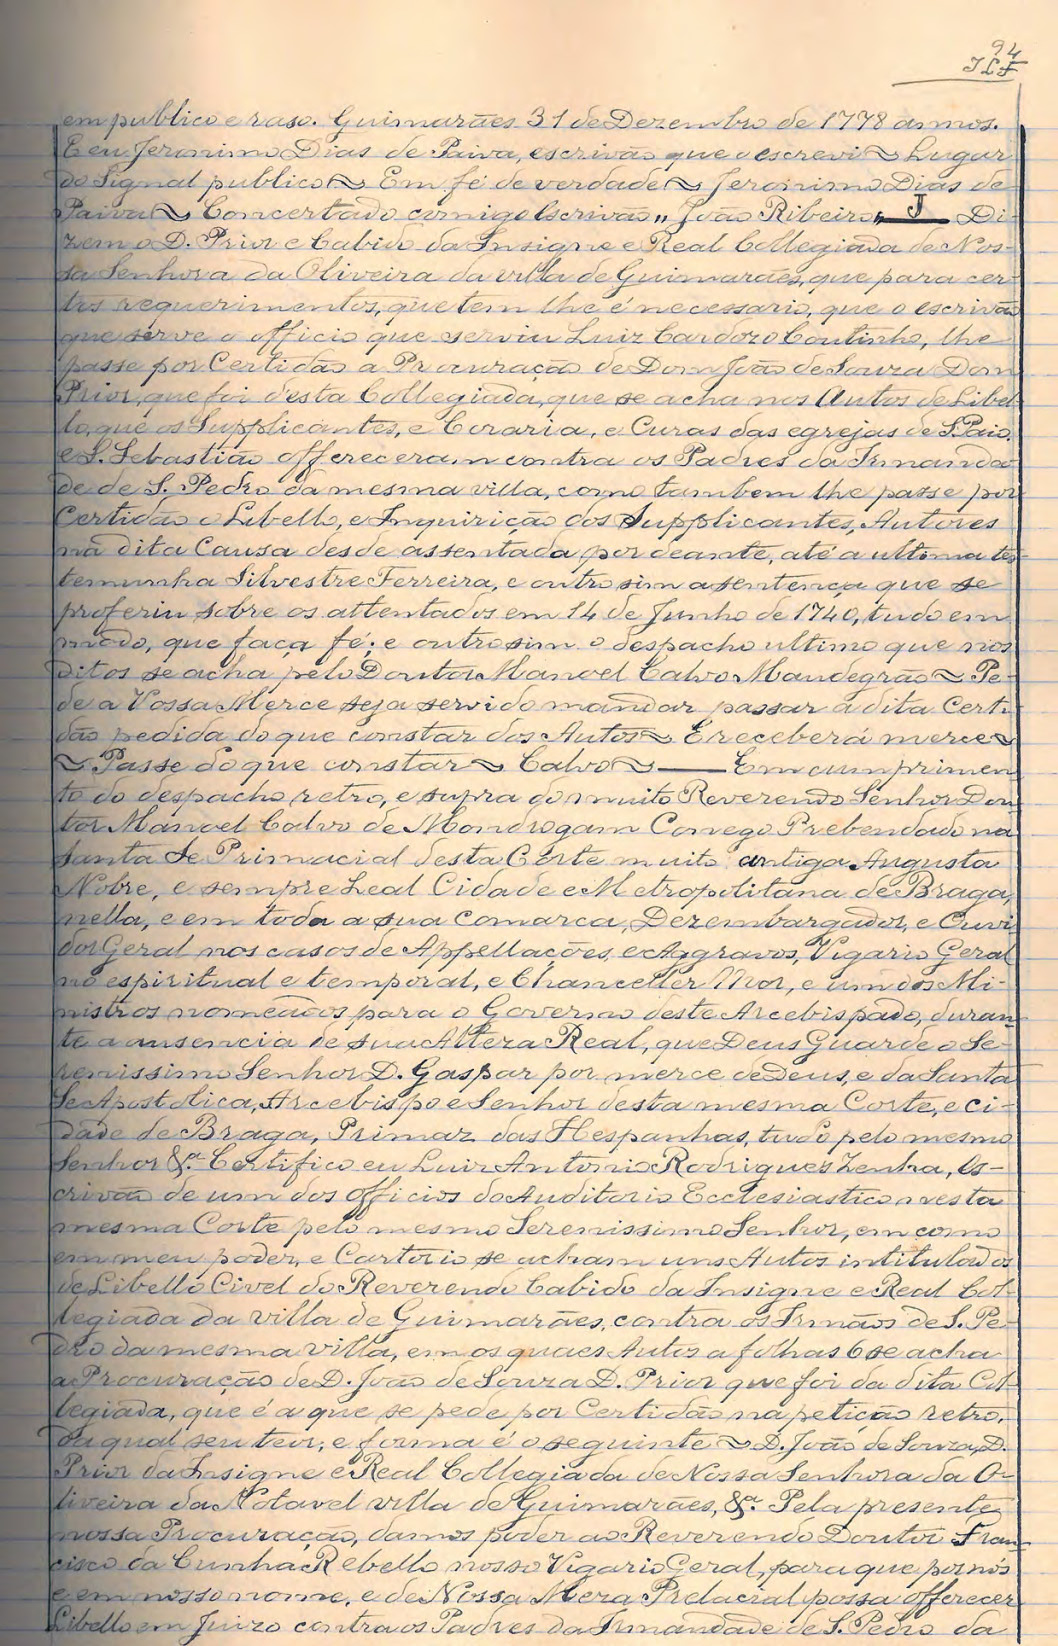 94
em publico e raso. Guimarães 31 de Dezembro de 1778 annos.
E eu Jeronimo Dias de Paiva, escrivão que o escrevi ~ Lugar
do Signal publico ~ Em fé de verdade ~ Jeronimo Dias de
Paiva ~ Concertado comigo Escrivão,, João Ribeiro,, J — Di-
zem o D. Prior e Cabido da Insigne e Real Collegiada de Nos-
sa Senhora da Oliveira da villa de Guimarães, que para cer-
tos requerimentos, que tem lhe é necessario, que o escrivão
que serve o officio que serviu Luiz Cardozo Coutinho, lhe
passe por Certidão a Procuração de Dom João de Souza Dom
Prior, que foi d'esta Collegiada, que se acha nos Autos de Libel-
lo, que os Supplicantes, e Coraria, e Curas das egrejas de S. Paio,
e S. Sebastião offereceram contra os Padres da Irmanda-
de de S. Pedro da mesma villa, como tambem lhe passe por
Certidão o Libello, e Inquirição dos Supplicantes, Autores
na dita Causa desde assentada por deante, até a ultima tes-
temunha Silvestre Ferreira, e outro sim a sentença que se
proferiu sobre os attentados em 14 de Junho de 1740, tudo em
modo, que faça fé; e outrosim o despacho ultimo que nos
ditos se acha pelo Doutor Manoel Calvo Mandegrão ~ Pe-
de a Vossa Merce seja servido mandar passar a dita Certi-
dão pedida do que constar dos Autos ~ E receberá merce ~
~ Passe do que constar ~ Calvo ~ — Em cumprimen-
to do despacho retro, e supra do muito Reverendo Senhor Dou-
tor Manoel Calvo de Mondrogam Conego Prebendado na
Santa Se Primacial desta Côrte muito antiga, Augusta
Nobre, e sempre Leal Cidade e Metropolitana de Braga,
nella, e em toda a sua comarca, Dezembargador, e Ouvi-
dor Geral nos casos de Appellações, e Aggravos, Vigario Geral
no espiritual e temporal, e Chanceller Mor, e um dos Mi-
nistros nomeados para o Governo deste Arcebispado, duran-
te a ausencia de sua Alteza Real, que Deus Guarde o Se-
renissimo Senhor D. Gaspar por merce de Deus, e da Santa
Se Apostolica, Arcebispo e Senhor desta mesma Corte, e ci-
dade de Braga, Primaz das Hespanhas, tudo pelo mesmo
Senhor &.ª Certifico eu Luiz Antonio Rodrigues Zenha, Es-
crivão de um dos officios do Auditorio Ecclesiastico nesta
mesma Corte pelo mesmo Serenissimo Senhor, em como
em meu poder, e Cartorio se acham uns Autos intitulados
de Libello Civel do Reverendo Cabido da Insigne e Real Col-
legiada da villa de Guimarães, contra os Irmãos de S. Pe-
dro da mesma villa, em os quaes Autos a folhas 6 se acha
a Procuração de D. João de Souza D. Prior que foi da dita Col-
legiada, que é a que se pede por Certidão na petição retro,
da qual seu teor, e forma é o seguinte ~ D. João de Souza, D.
Prior da Insigne e Real Collegiada de Nossa Senhora da O-
liveira da Notavel villa de Guimarães, &.ª Pela presente
nossa Procuração, damos poder ao Reverendo Doutor Fran-
cisco da Cunha Rebello nosso Vigario Geral, para que por nós
e em nosso nome, e de Nossa Meza Prelacial possa offerecer
Libello em Juizo contra os Padres da Irmandade de S. Pedro da